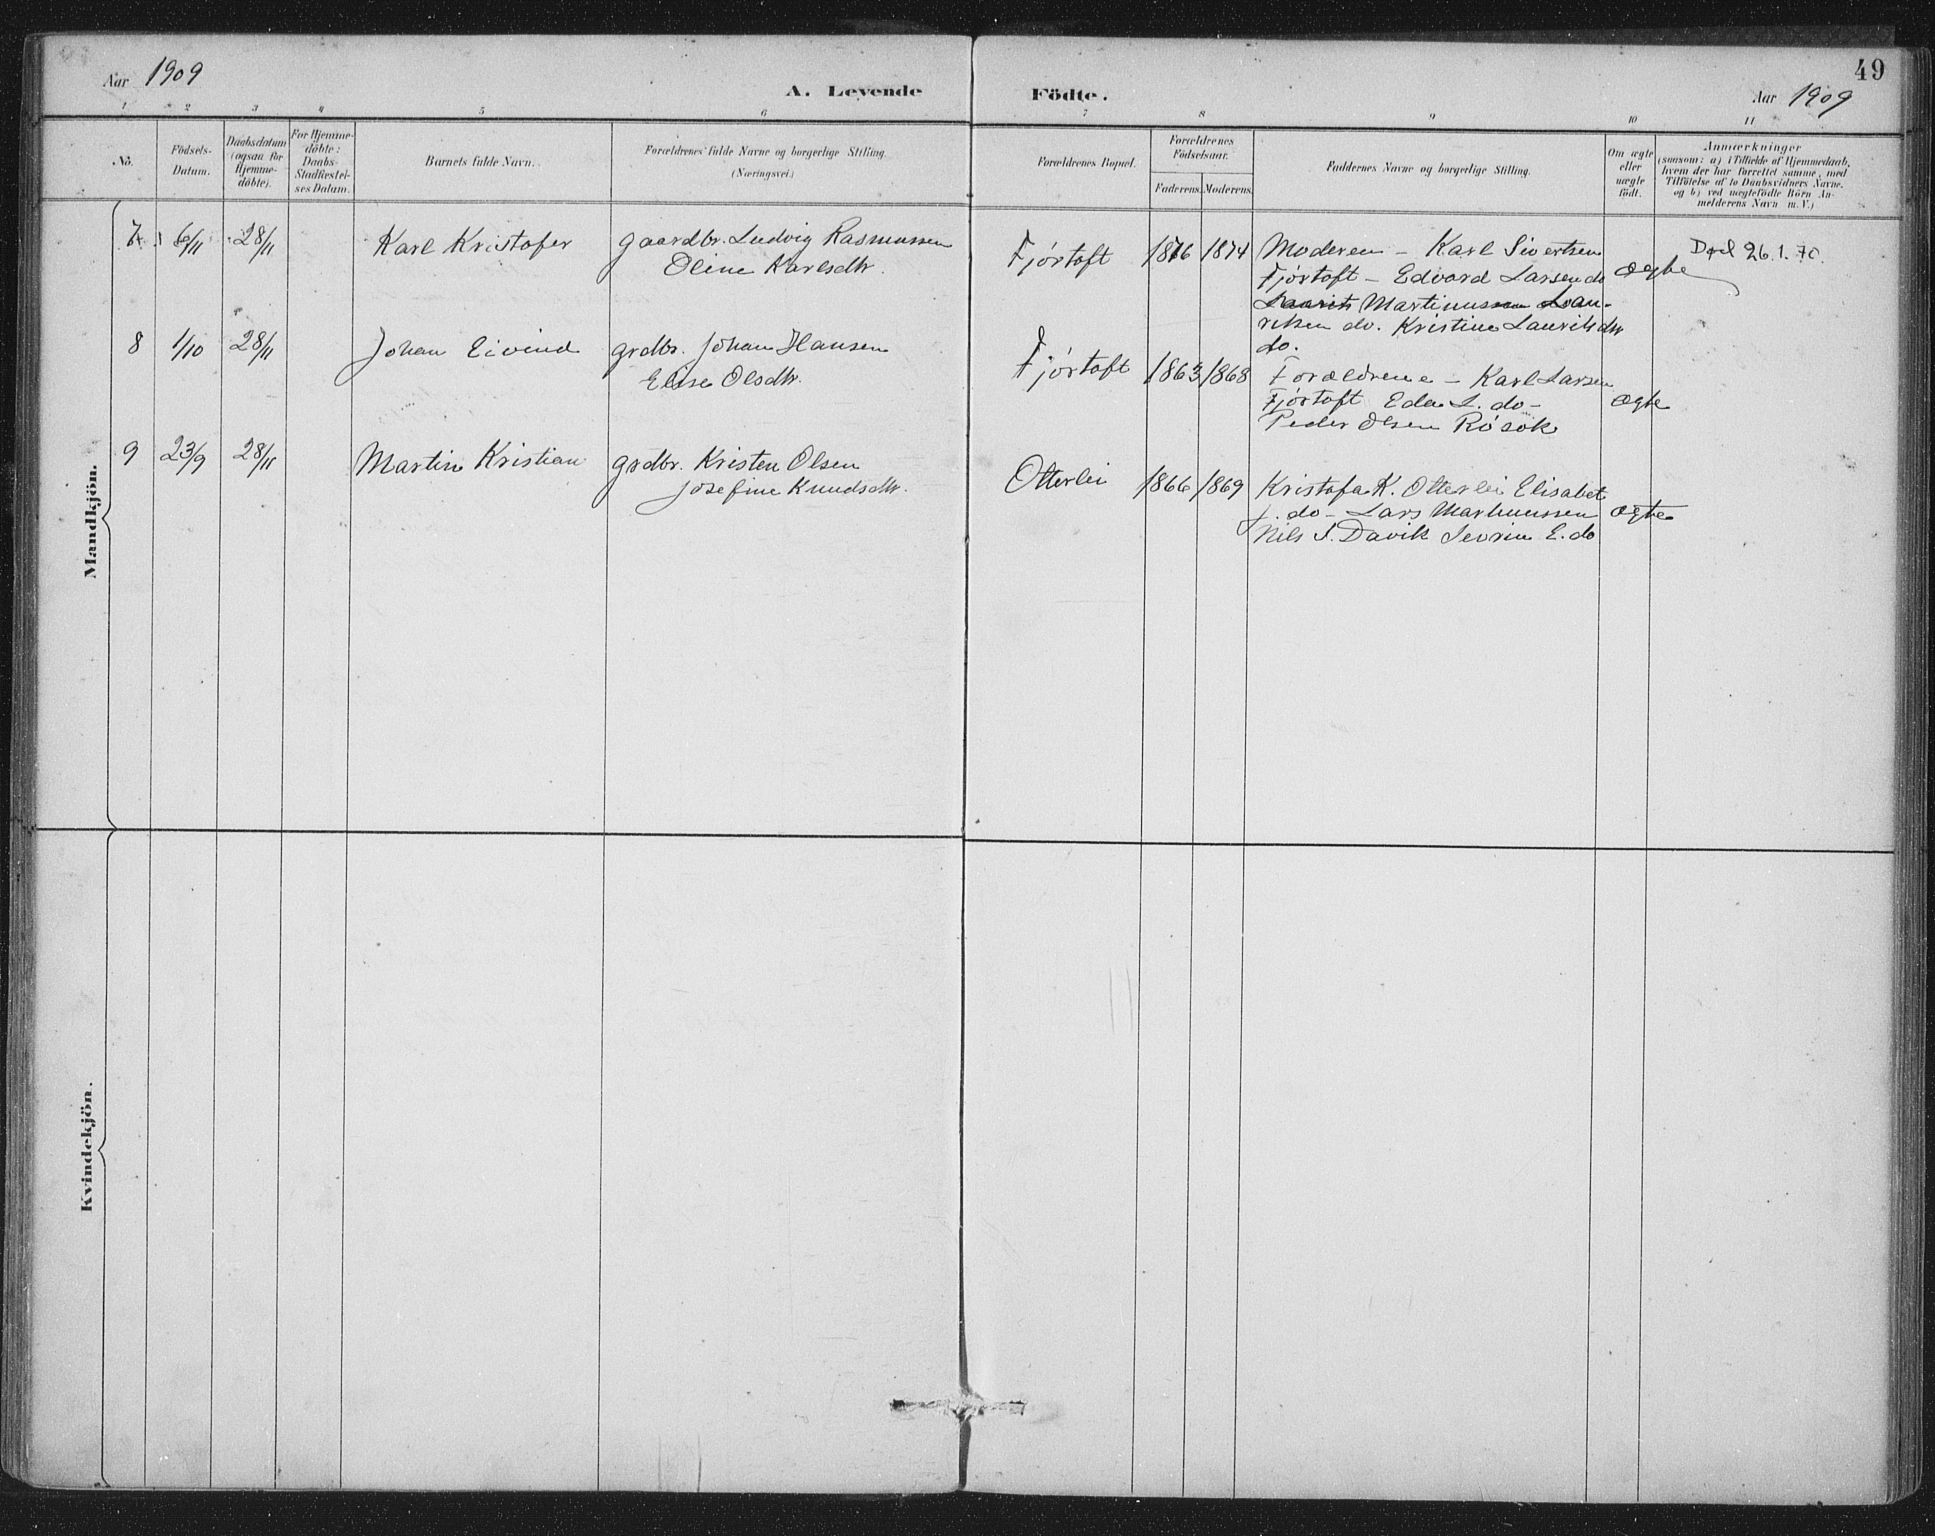 Aar 1909
A. Levende
Födte.
49
Aar 1909
1 2 3 4 5 6 7 8 9 10 11
No.
Födsels-
Datum.
Daabsdatum
(ogsaa for
Hjemme-
döbte).
For Hjemme-
döbte:
Daabs-
Stadfæstel-
ses Datum.
Barnets fulde Navn.
Forældrenes fulde Navne og borgerlige Stilling.
(Næringsvei.)
Forældrenes Bopæl.
Forældrenes
Födselsaar.
Faderens. Moderens.
Faddernes Navne og borgerlige Stilling.
Om ægte
eller
uægte
födt.
Anmærkninger
(saasom: a) i Tilfælde af Hjemmedaab,
hvem der har forrettet samme, med
Tilföielse af to Daabsvidners Navne,
og b) ved uægtefödte Börn An-
melderens Navn m. V.)
Mandkjön.
7 6/11 28/11 Karl Kristofer gaardbr. Ludvig Rasmussen
Oline Karlsdtr.
Fjørtoft 1876 1874 Moderen - Karl Sivertsen
Fjørtoft - Edvard Larsen do
Martinus
do. Kristine Lauritsdtr
do.
ægte
Død 26.1.70.
8 1/10 28/11 Johan Eivind grdbr. Johan Hansen
Elise Olsdtr.
Fjørtoft 1863 1868 Forældrene - Karl Larsen
Fjørtoft Eda L. do -
Peder Olsen Røsok
ægte
9 23/9 28/11 Martin Kristian grdbr. Kristen Olsen
Josefine Knudsdtr.
Otterlei 1866 1869 Kristofa K. Otterlei Elisabet
J. do - Lars Martinussen
Nils S. Davik Sevrin E. do
ægte
Kvindekjön.